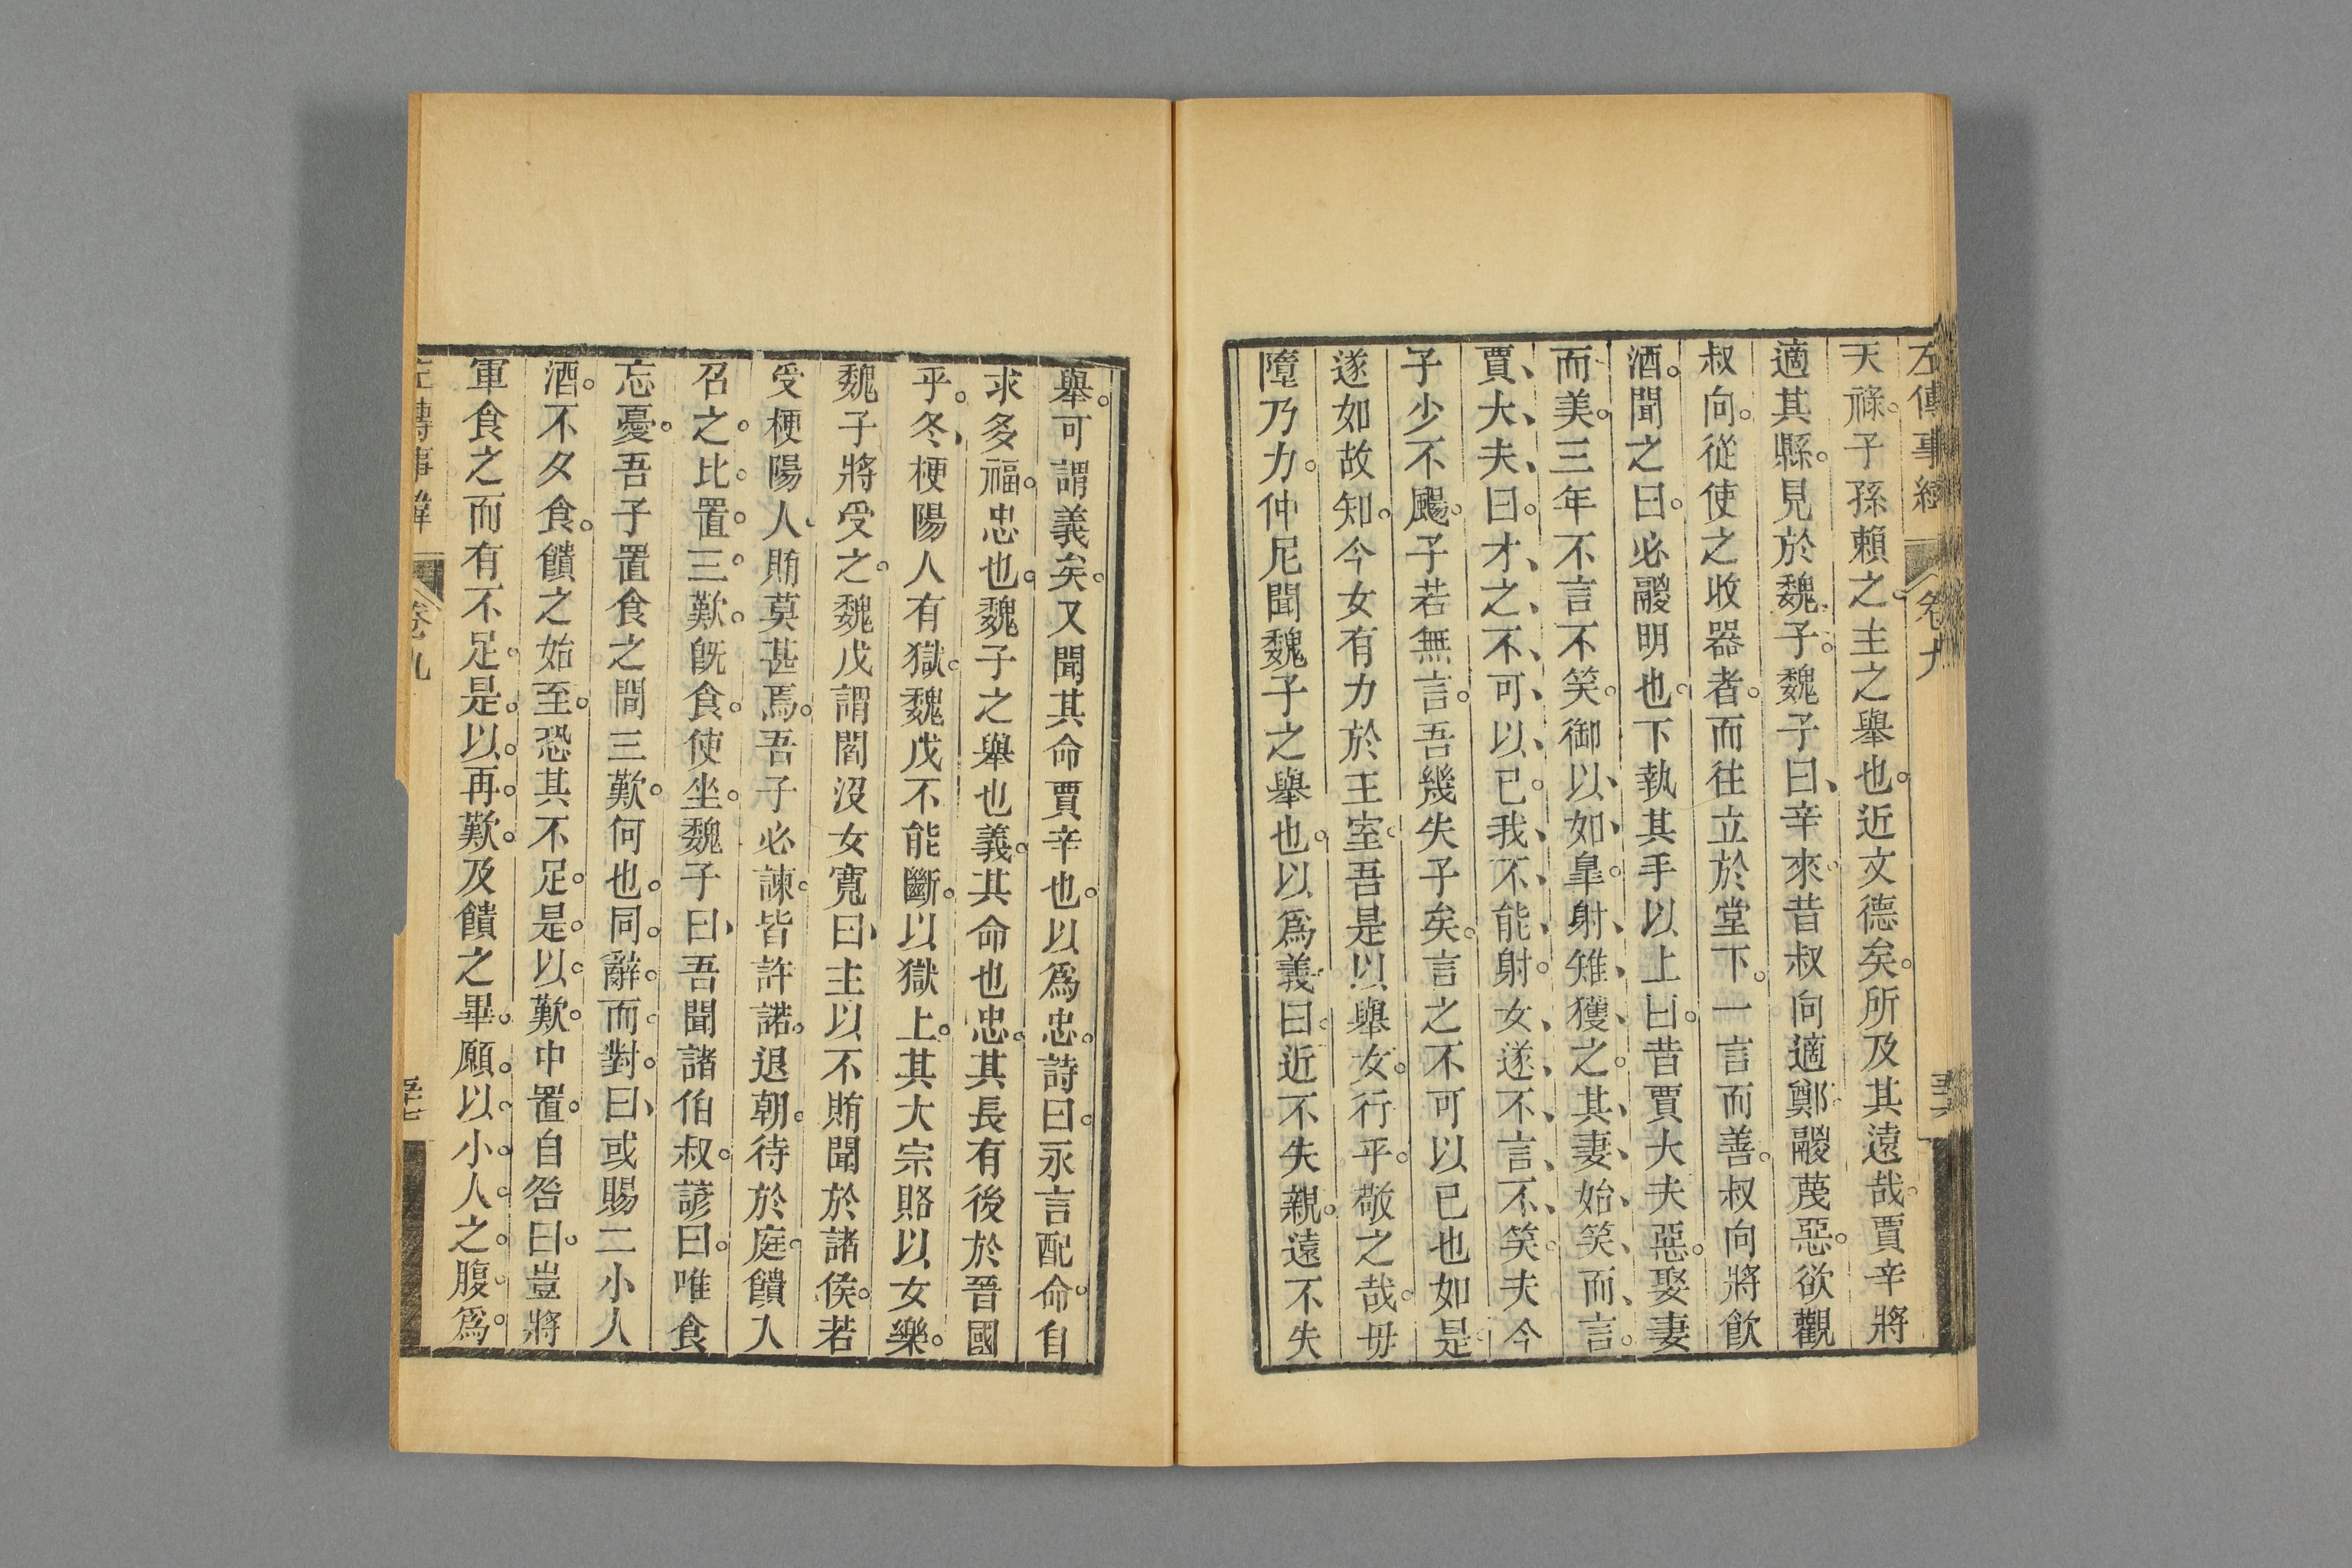 左傳事緯 卷九
天祿。子孫賴之。主之舉也。近文德矣。所及其遠哉。賈辛將
適其縣。見於魏子。魏子曰、辛來。昔叔向適鄭。鬷蔑惡。欲觀
叔向。從使之收器者。而往立於堂下。一言而善。叔向將飮
酒。聞之曰。必鬷明也。下執其手以上曰。昔賈大夫惡。娶妻
而美。三年不言不笑。御以、如、臯。射、雉、獲、之。其、妻、始、笑、而、言。
賈、大、夫、曰。才、之、不、可、以、已。我、不、能、射。女、遂、不、言、不、笑。夫今
子少不颺。子若無言。吾幾失子矣。言之不可以已也如是。
遂如故知。今女有力於王室。吾是以舉女。行乎。敬之哉。毋
墮乃力。仲尼聞魏子之舉也。以爲義。曰。近不失親。遠不失
舉。可謂義矣。又聞其命賈辛也。以爲忠。詩曰。永言配命。自
求多福。忠也。魏子之舉也義。其命也忠。其長有後於晉國
乎。冬、梗陽人有獄。魏戊不能斷。以獄上。其大宗賂以女樂。
魏子將受之。魏戊謂閻沒女寬曰、主以不賄聞於諸侯。若
受梗陽人、賄莫甚焉。吾子必諫。皆許諾。退朝。待於庭。饋入
召之。比。置。三。歎。旣食。使坐。魏子曰、吾聞諸伯叔。諺曰。唯食
忘憂。吾子置食之間三歎。何也。同。辭。而。對。曰、或賜二小人
酒。不夕食。饋之始至。恐其不足。是。以。歎。中置。自咎曰。豈將
軍食之而有不足。是。以。再。歎。及饋之畢。願。以。小。人。之。腹。爲。
左傳事緯 卷九